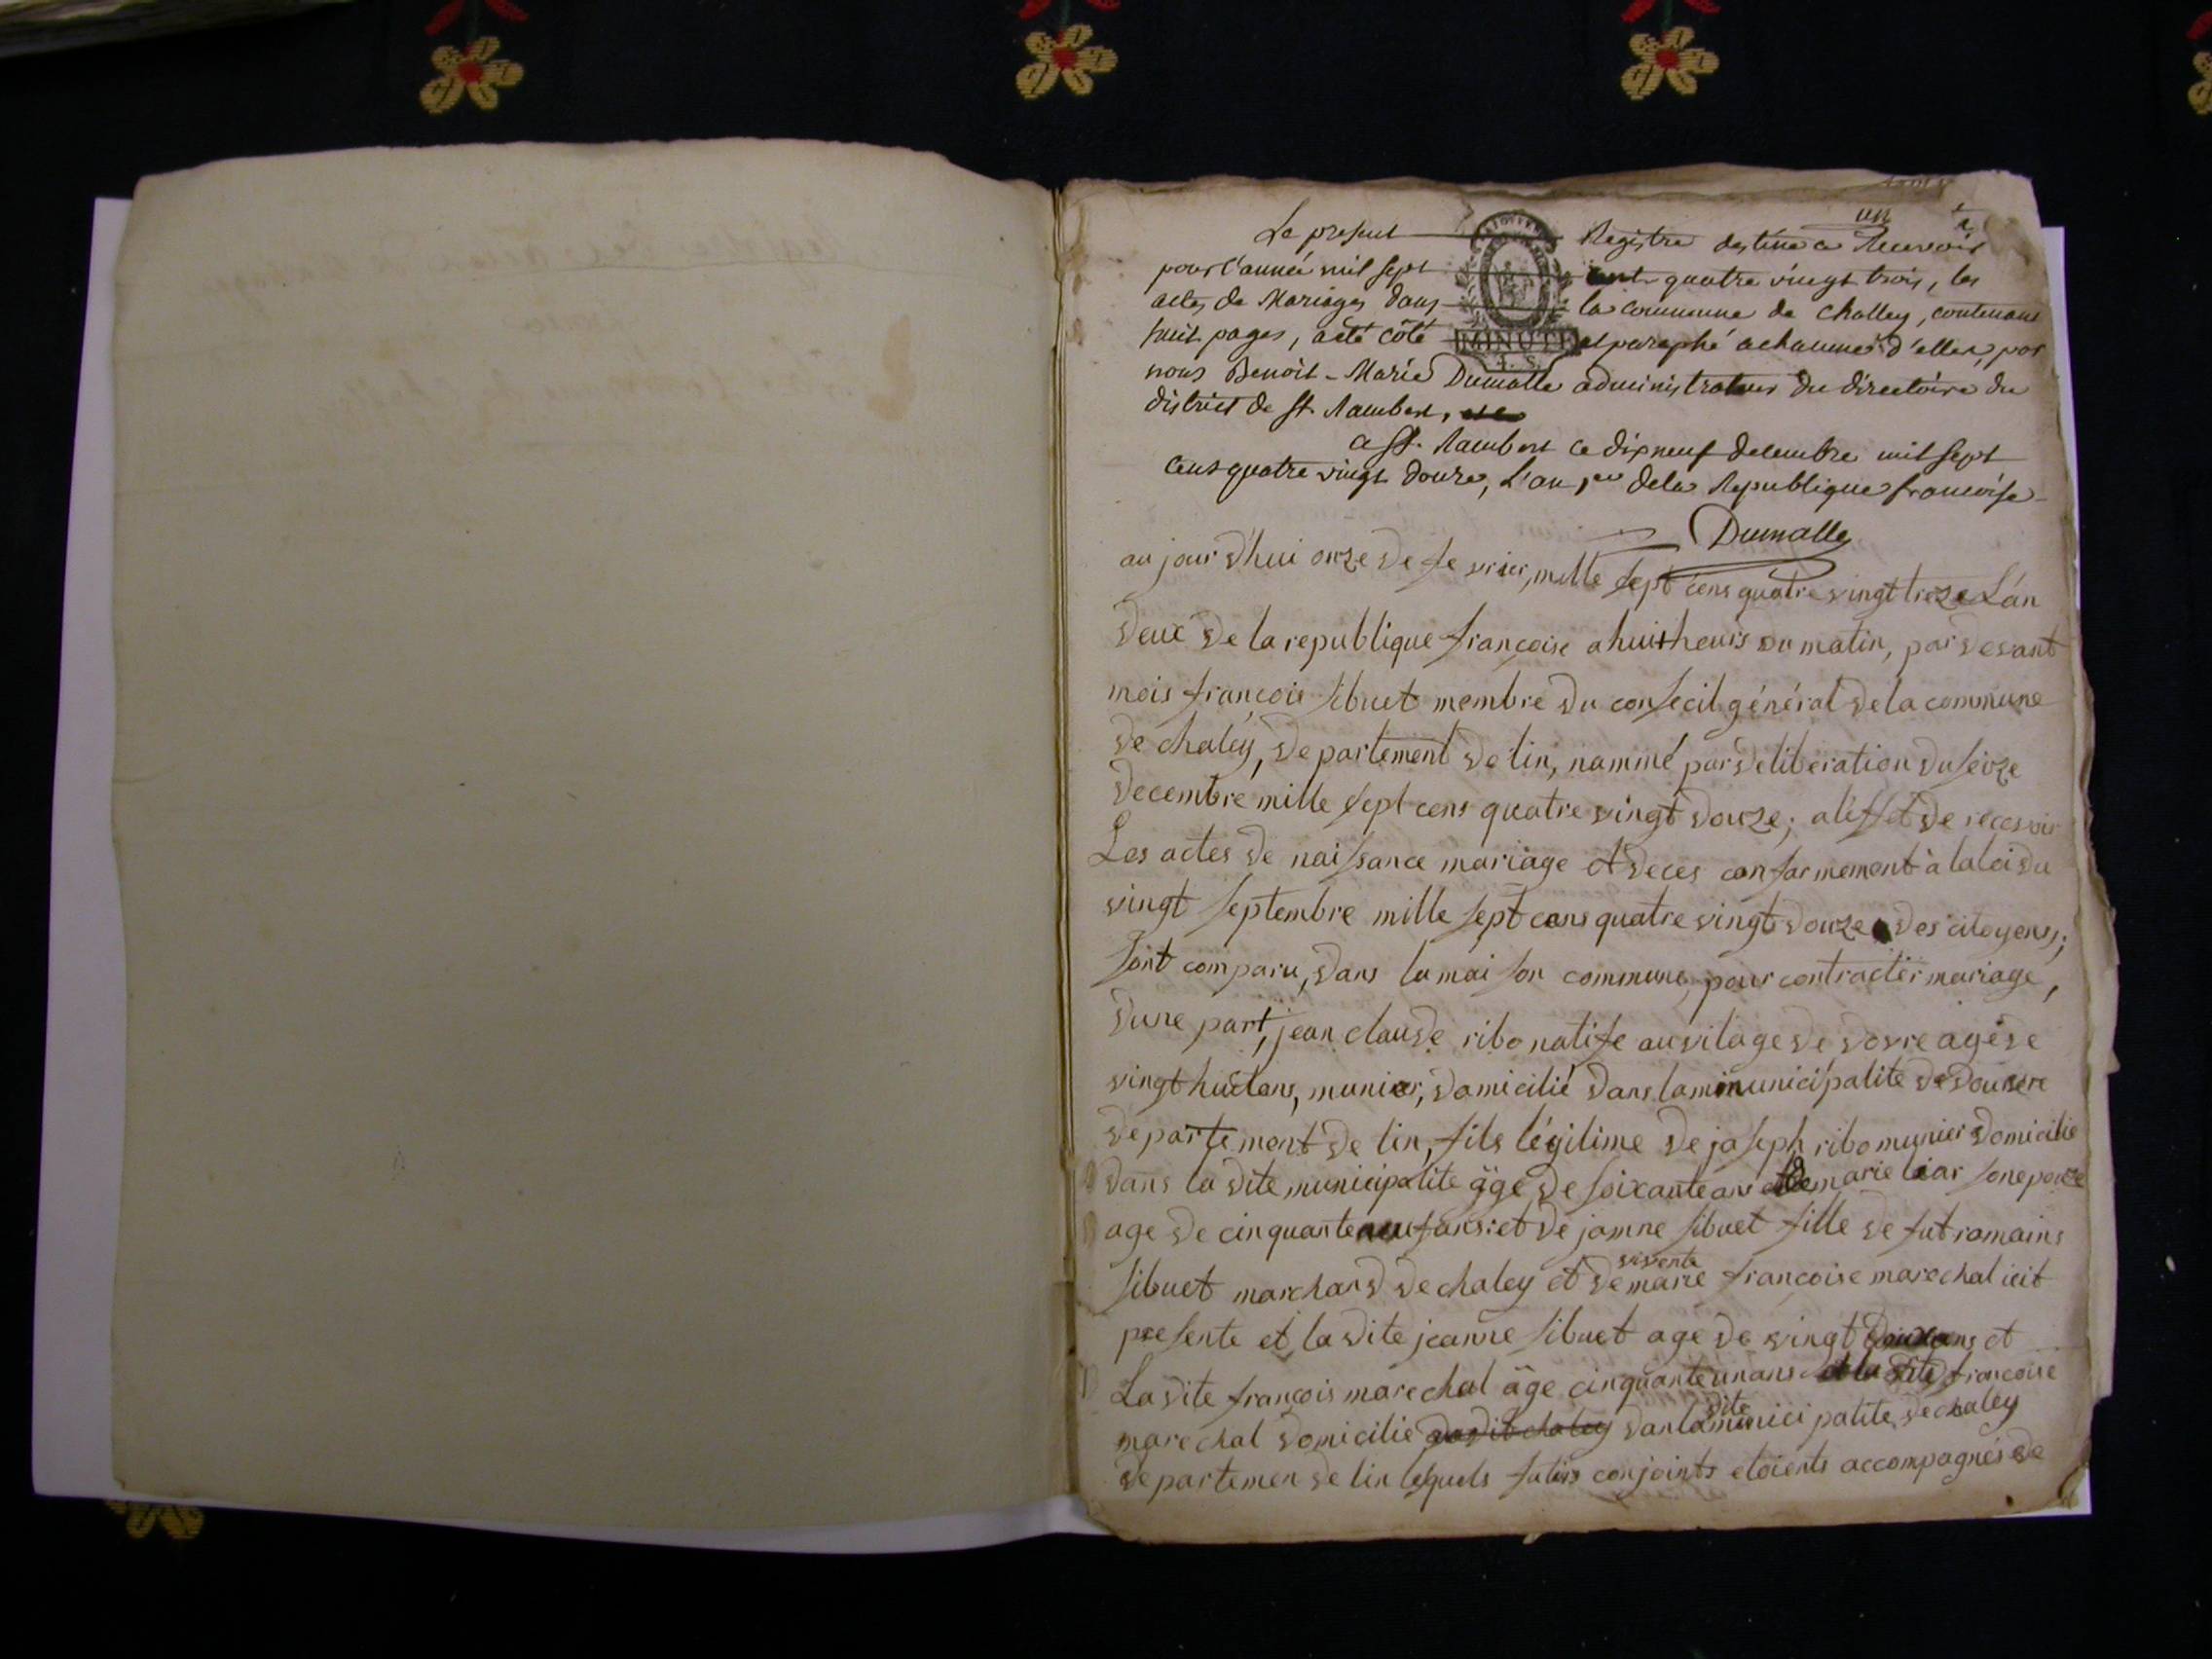 un
Le present Registre destiné a Recevoir
pour l'année mil sept cent quatre vingt trois, les
actes de Mariages dans la commune de challey, contenant
huit pages, a été côté et paraphé a chacune d'elles, par
MINUTE
nous Benoit-Marie Dumalle administrateur du directoire du
district de st. Rambert,
a st. Rambert ce dixneuf decembre mil sept
cens quatre vingt douze, L'an 1er dela Republique francoise
Dumalle
au jour d'hui onze de fevrier, mille sept cens quatre vingt treze L'an
deux de la republique françoise a huit heurs du matin, par devant
mois françois sibuet membre du conseil général de la commune
de chaley, departement de lin, nammé par deliberation du seize
decembre mille sept cens quatre vingt douze; aléffet de recevoir
Les actes de naissance mariage et deces confarmement à la loi du
vingt septembre mille sept cens quatre vingt douze des citoyens;
sont comparu, dans la maison commune, pour contracter mariage,
dune part, jean claude ribo natife au vilage de dovre agé de
vingt huit ans, munier, domicilié dans la municipalité de
departement de lin, fils légitime de joseph ribo munier domicilié
dans la dite municipalite äge de soixante ans et de marie liar son epouze
age de cinquante neuf ans: et de jamne sibuet fille de fut romains
vivente
sibuet marchand de chaley et de marie francoise marechal icit
presente et la dite jeanne sibuet age de vingt ans et
La dite françois marechal âge cinquante un ans et la dite francoise
dite
marechal domicilie dans la municipalite de chaley
departemen de lin lesquels futurs conjoints etoients accompagnés de